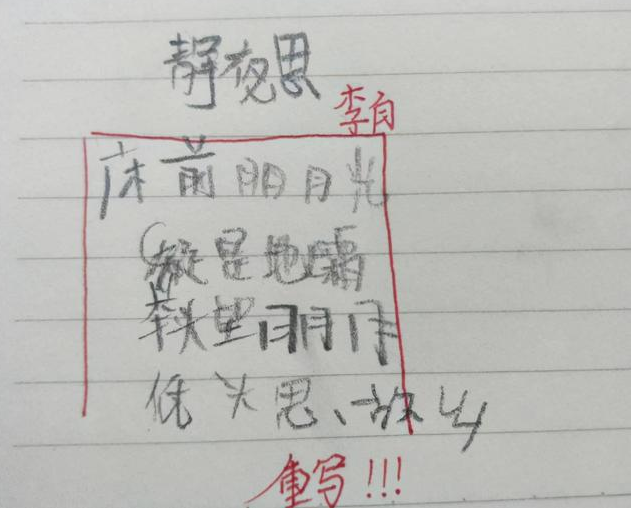 静夜思
李白
床前明月光
疑是地霜
举头望明月
低头思故乡
重写!!!